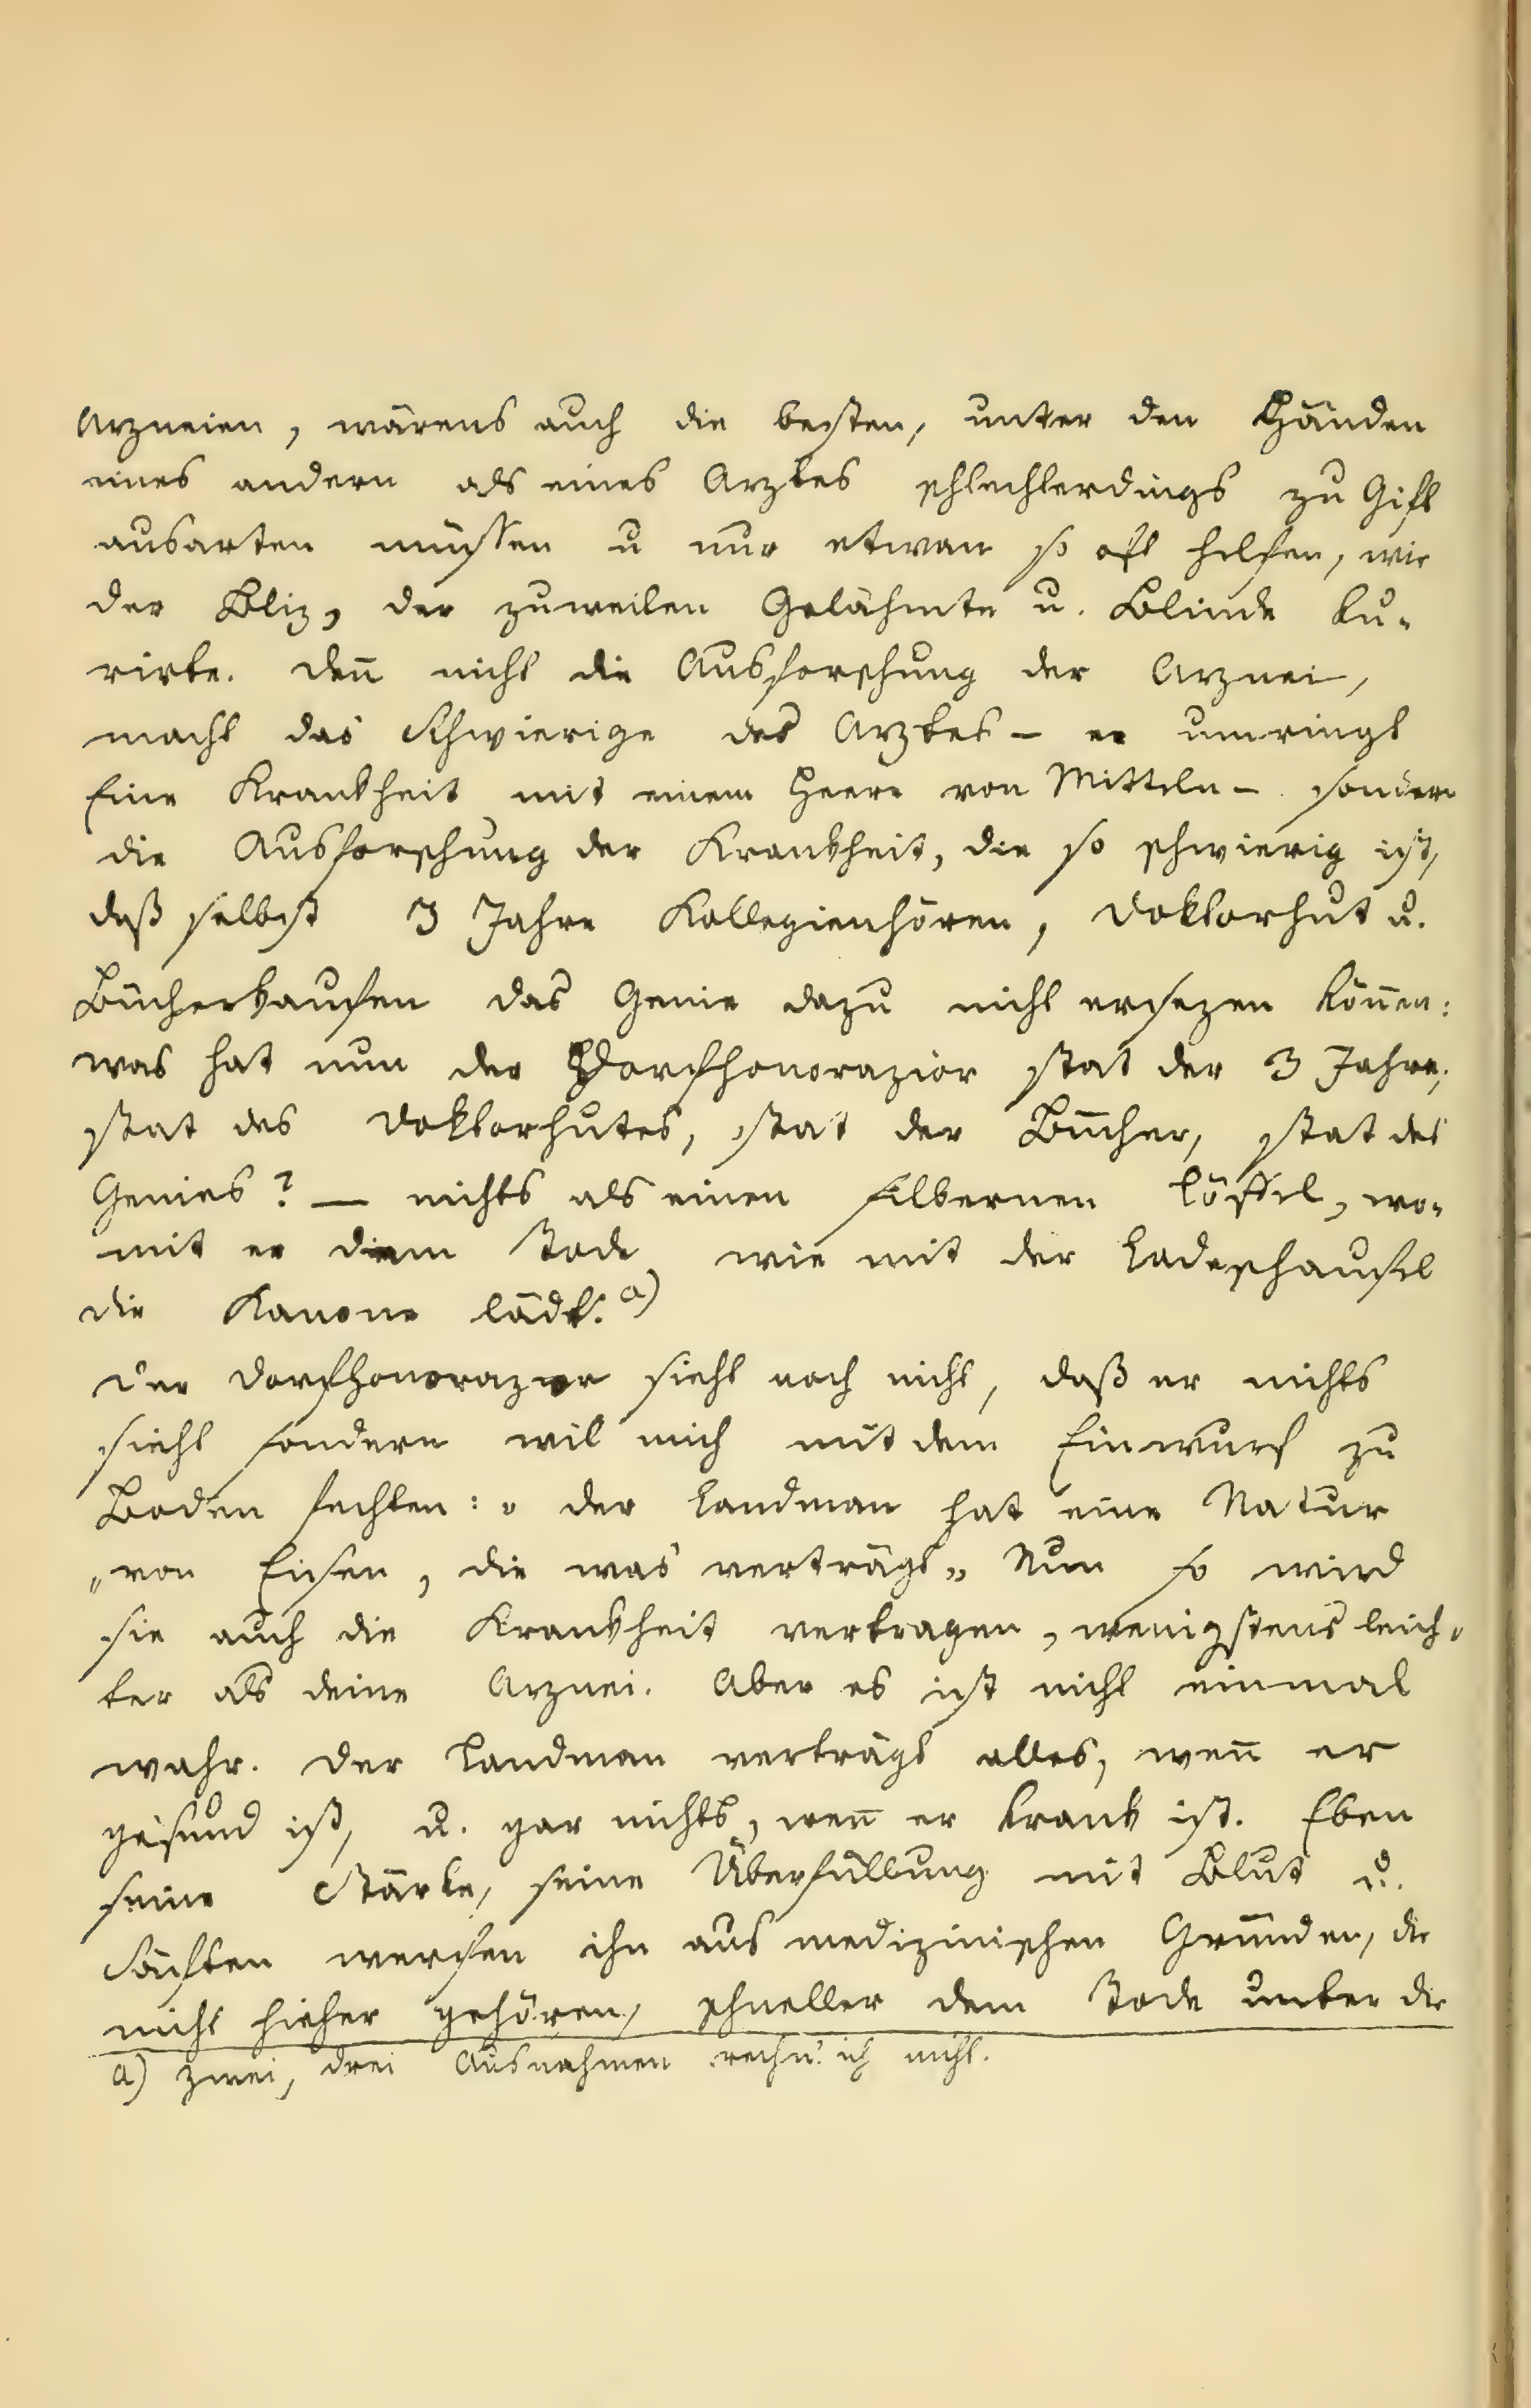 Arzneien, wärens auch die besten, unter den Händen
eines andern als eines Arztes schlechterdings zu Gift
ausarten müssen u nur etwan so oft helfen, wie
der Bliz, der zuweilen Gelähmte u. Blinde ku-
rirte. Den̄ nicht die Ausforschung der Arznei,
macht das Schwierige des Arztes – er umringt
Eine Krankheit mit einem Heere von Mitteln – sondern
die Ausforschung der Krankheit, die so schwierig ist,
daß selbst 3 Jahre Kollegienhören, Doktorhut u.
Bücherkaufen das Genie dazu nicht ersezen kön̄en:
was hat nun der Dorfhonorazior stat der 3 Jahre,
stat des Doktorhutes, stat der Bücher, stat des
Genies? — nichts als einen silbernen Löffel, wo-
mit er dem Tode wie mit der Ladeschaufel
die Kanone lädt. a)
Der Dorfhonorazior sieht noch nicht, daß er nichts
sieht sondern wil mich mit dem Einwurf zu
Boden fechten: „der Landman hat eine Natur
„von Eisen, die was verträgt„ Nun so wird
sie auch die Krankheit vertragen, wenigstens leich-
ter als deine Arznei. Aber es ist nicht einmal
wahr. Der Landman verträgt alles, wen̄ er
gesund ist, u. gar nichts, wen̄ er krank ist. Eben
seine Stärke, seine Überfüllung mit Blut u.
Säften werfen ihn aus medizinischen Gründen, die
nicht hieher gehören, schneller dem Tode unter die
a) zwei, drei Ausnahmen rechn' ich nicht.